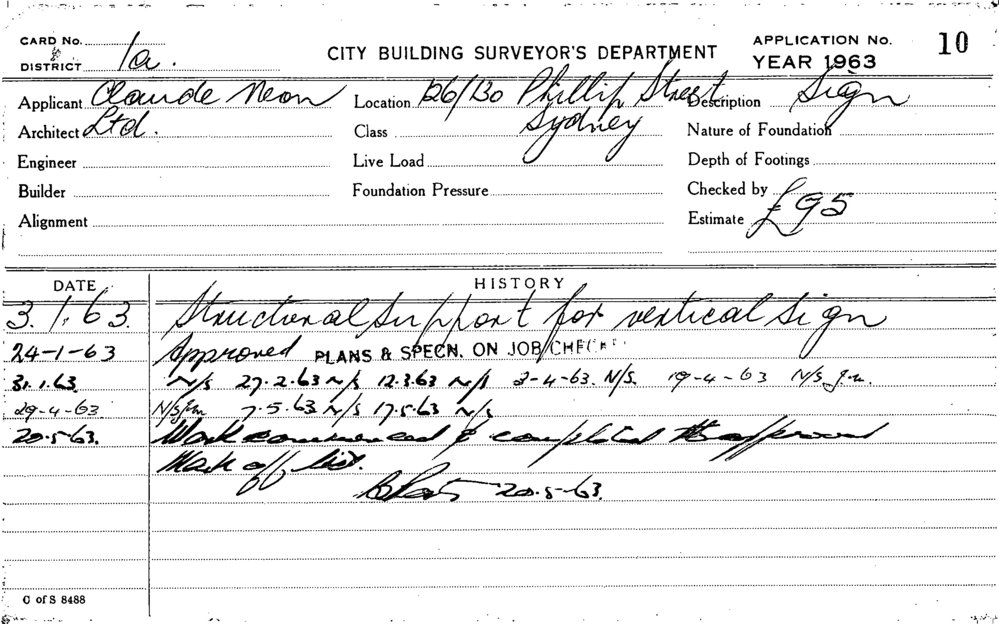 CARD No.
& DISTRICT 1a.
CITY BUILDING SURVEYOR'S DEPARTMENT
APPLICATION No. 10
YEAR 1963
Applicant Claude Neon
Location 126/130 Phillip Street
Description Sign
Architect Ltd.
Class Sydney
Nature of Foundation
Engineer
Live Load
Depth of Footings
Builder
Foundation Pressure
Checked by
Alignment
Estimate £95
DATE HISTORY
3.1.63. Structural support for vertical sign
24-1-63 Approved PLANS & SPECN. ON JOB/CHECKED
31.1.63. N/S 27.2.63 N/S 12.3.63 N/S 3-4-63. N/S. 19-4-63 N/S J.m.
29-4-63. N/S J.m 7.5.63 N/S 17.5.63 N/S
20.5.63. Work commenced & completed to approval
Mark off list.
20.5-63.
C of S 8488